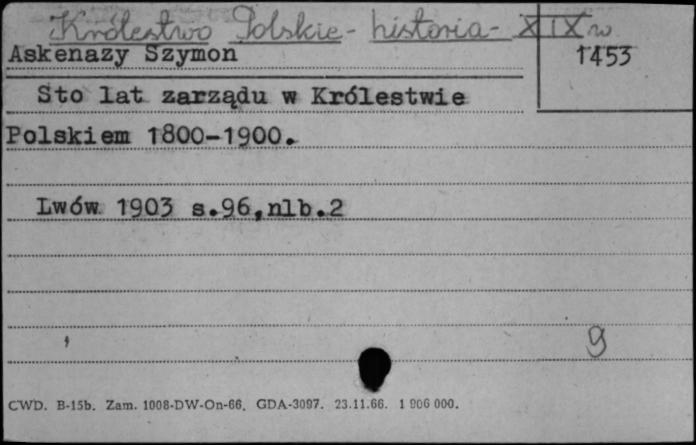 Królestwo Polskie - historia - XIX w
Askenazy Szymon
1453
Sto lat zarządu w Królestwie
Polskiem 1800-1900.
Lwów 1903 s.96,nlb.2
9
CWD. B-15b. Zam. 1008-DW-On-66. GDA-3097. 23.11.66. 1 906 000.